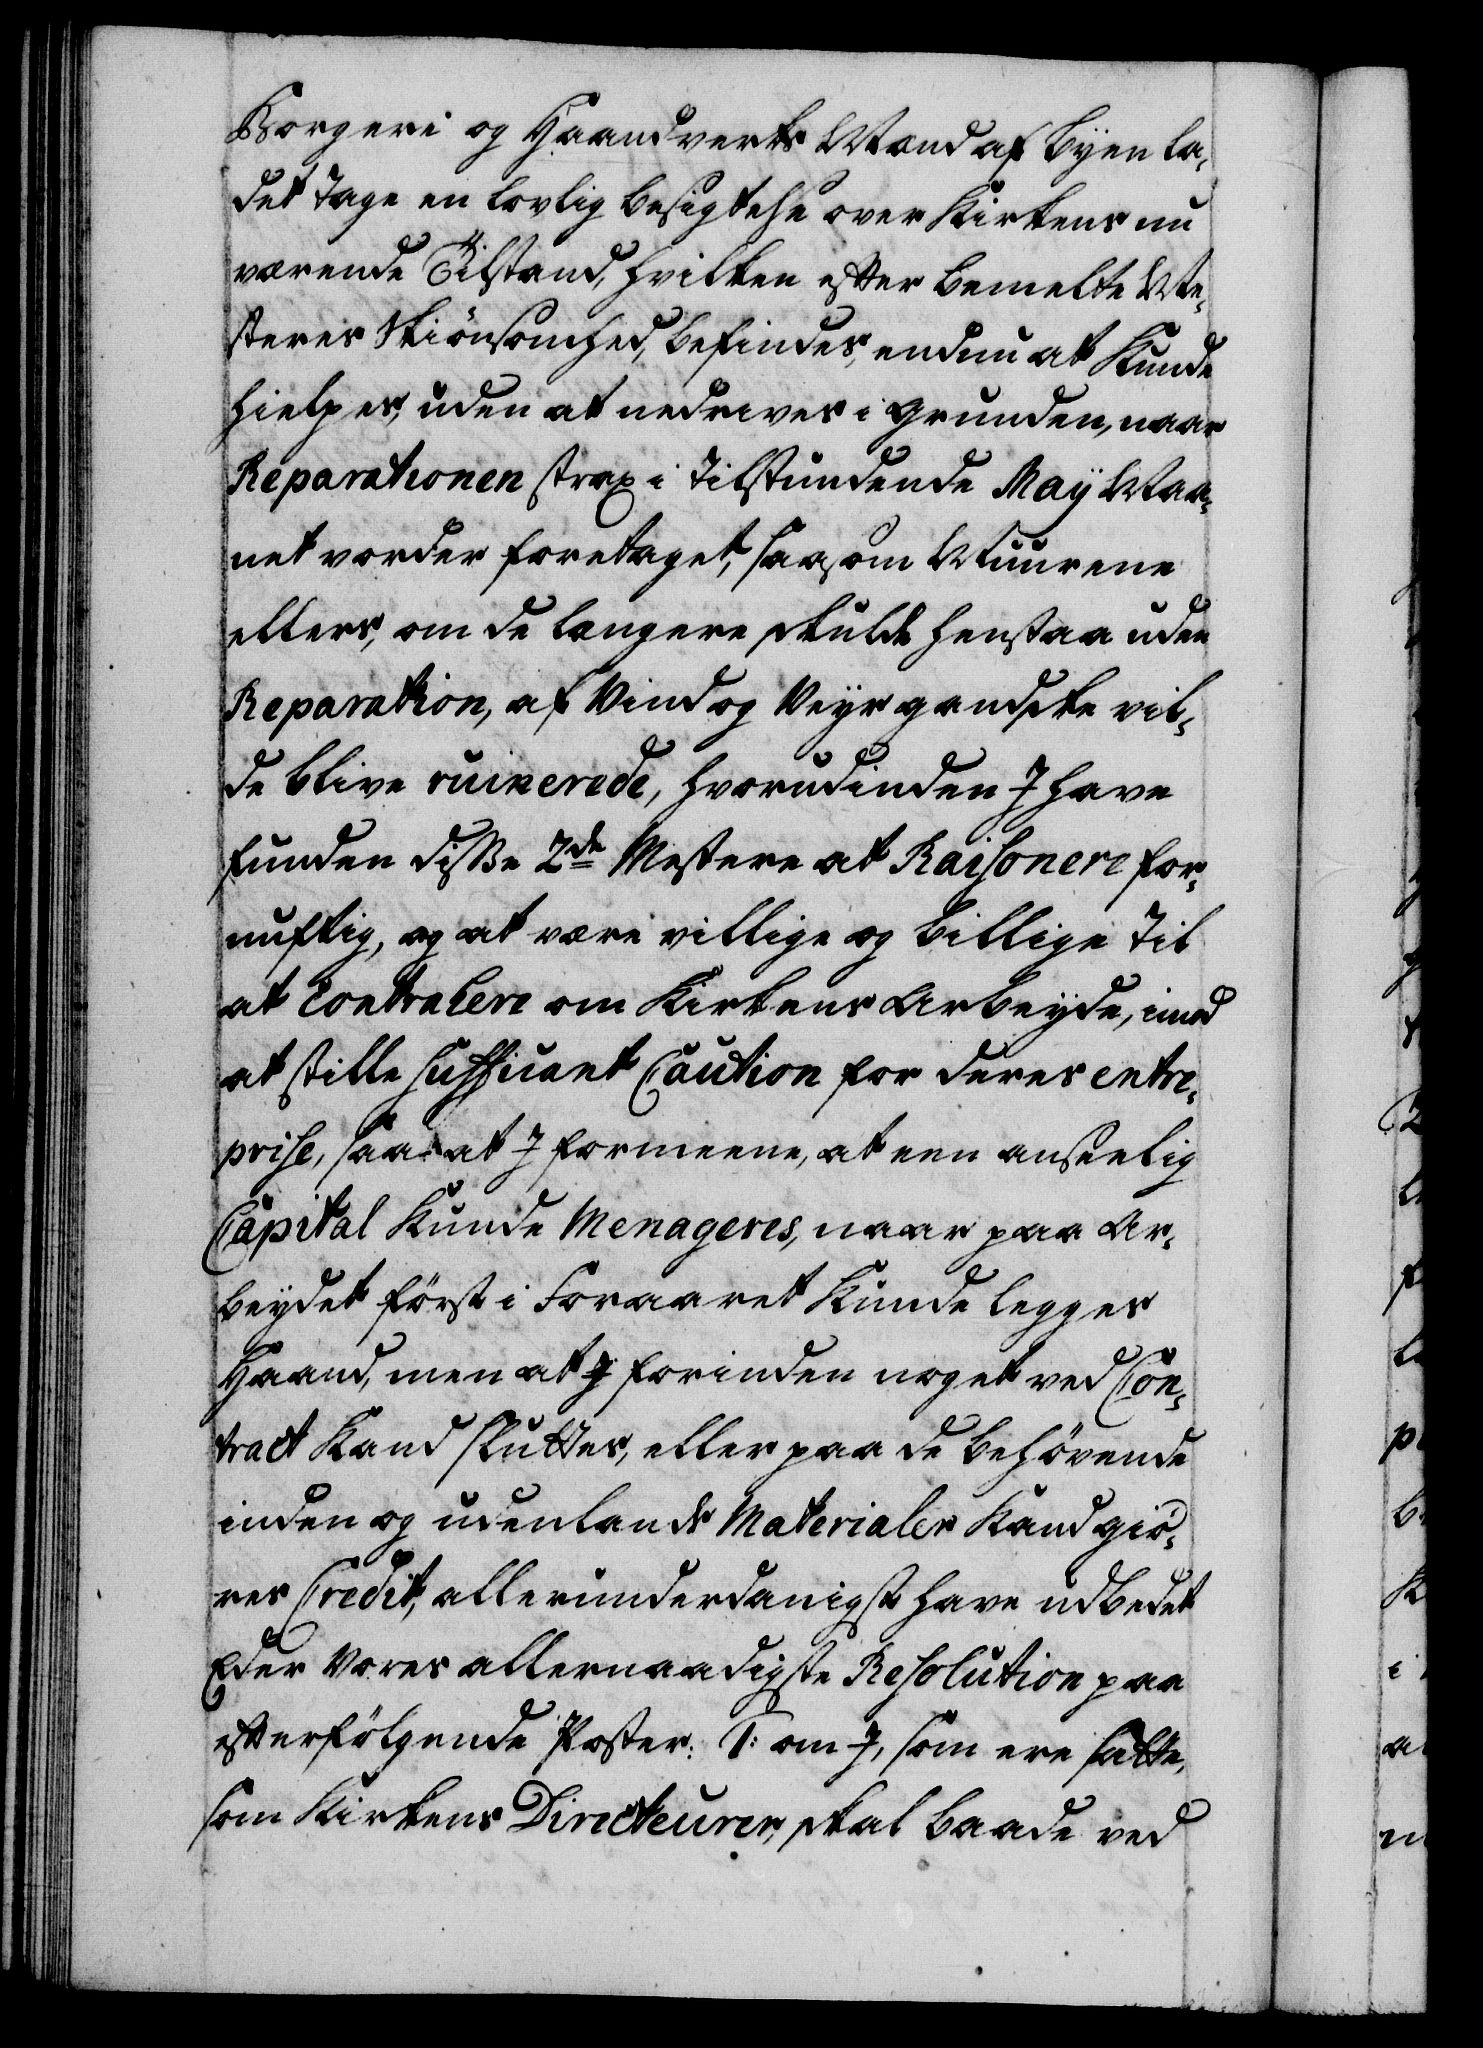 Borgeri og Haandverks Mænd af byen la,
det tage en lovlig besigtelse over Kirkens nu
værende Tilstand, hvilken efter bemelte Me,
steres Skiönsomhed, befindes, endnu at kunde
hielpes, uden at nedrives i Grunden, naar
Reparationen strax i tilstundende Maÿ Maa,
net vorder foretaget, saasom Muurene
ellers, om de længere skulde henstaa uden
Reparation, af Vind og Veÿr gandske vil,
de blive ruinerede, hvorudinden J have
funden disse 2de Mestere at Raisonere for,
nuftig, og at være villige og billige til
at Contrahere om Kirkens Arbeÿde, imod
at stille sufficant Caution for deres entre,
prise, saa at J formeene, at een anseelig
Capital kunde Menageres, naar paa Ar,
beÿdet först i Foraaret kunde legges
Haand, men at J forinden noget ved Con,
tract kand sluttes, eller paa de behövende
inden og udenlands Materialer kand giö,
res Credit, allerunderdanigst have udbedet
Eder Vores allernaadigste Resolution paa
efterfölgende Poster: 1: om J, som ere satte,
som Kirkens Directeurer, skal baade ved